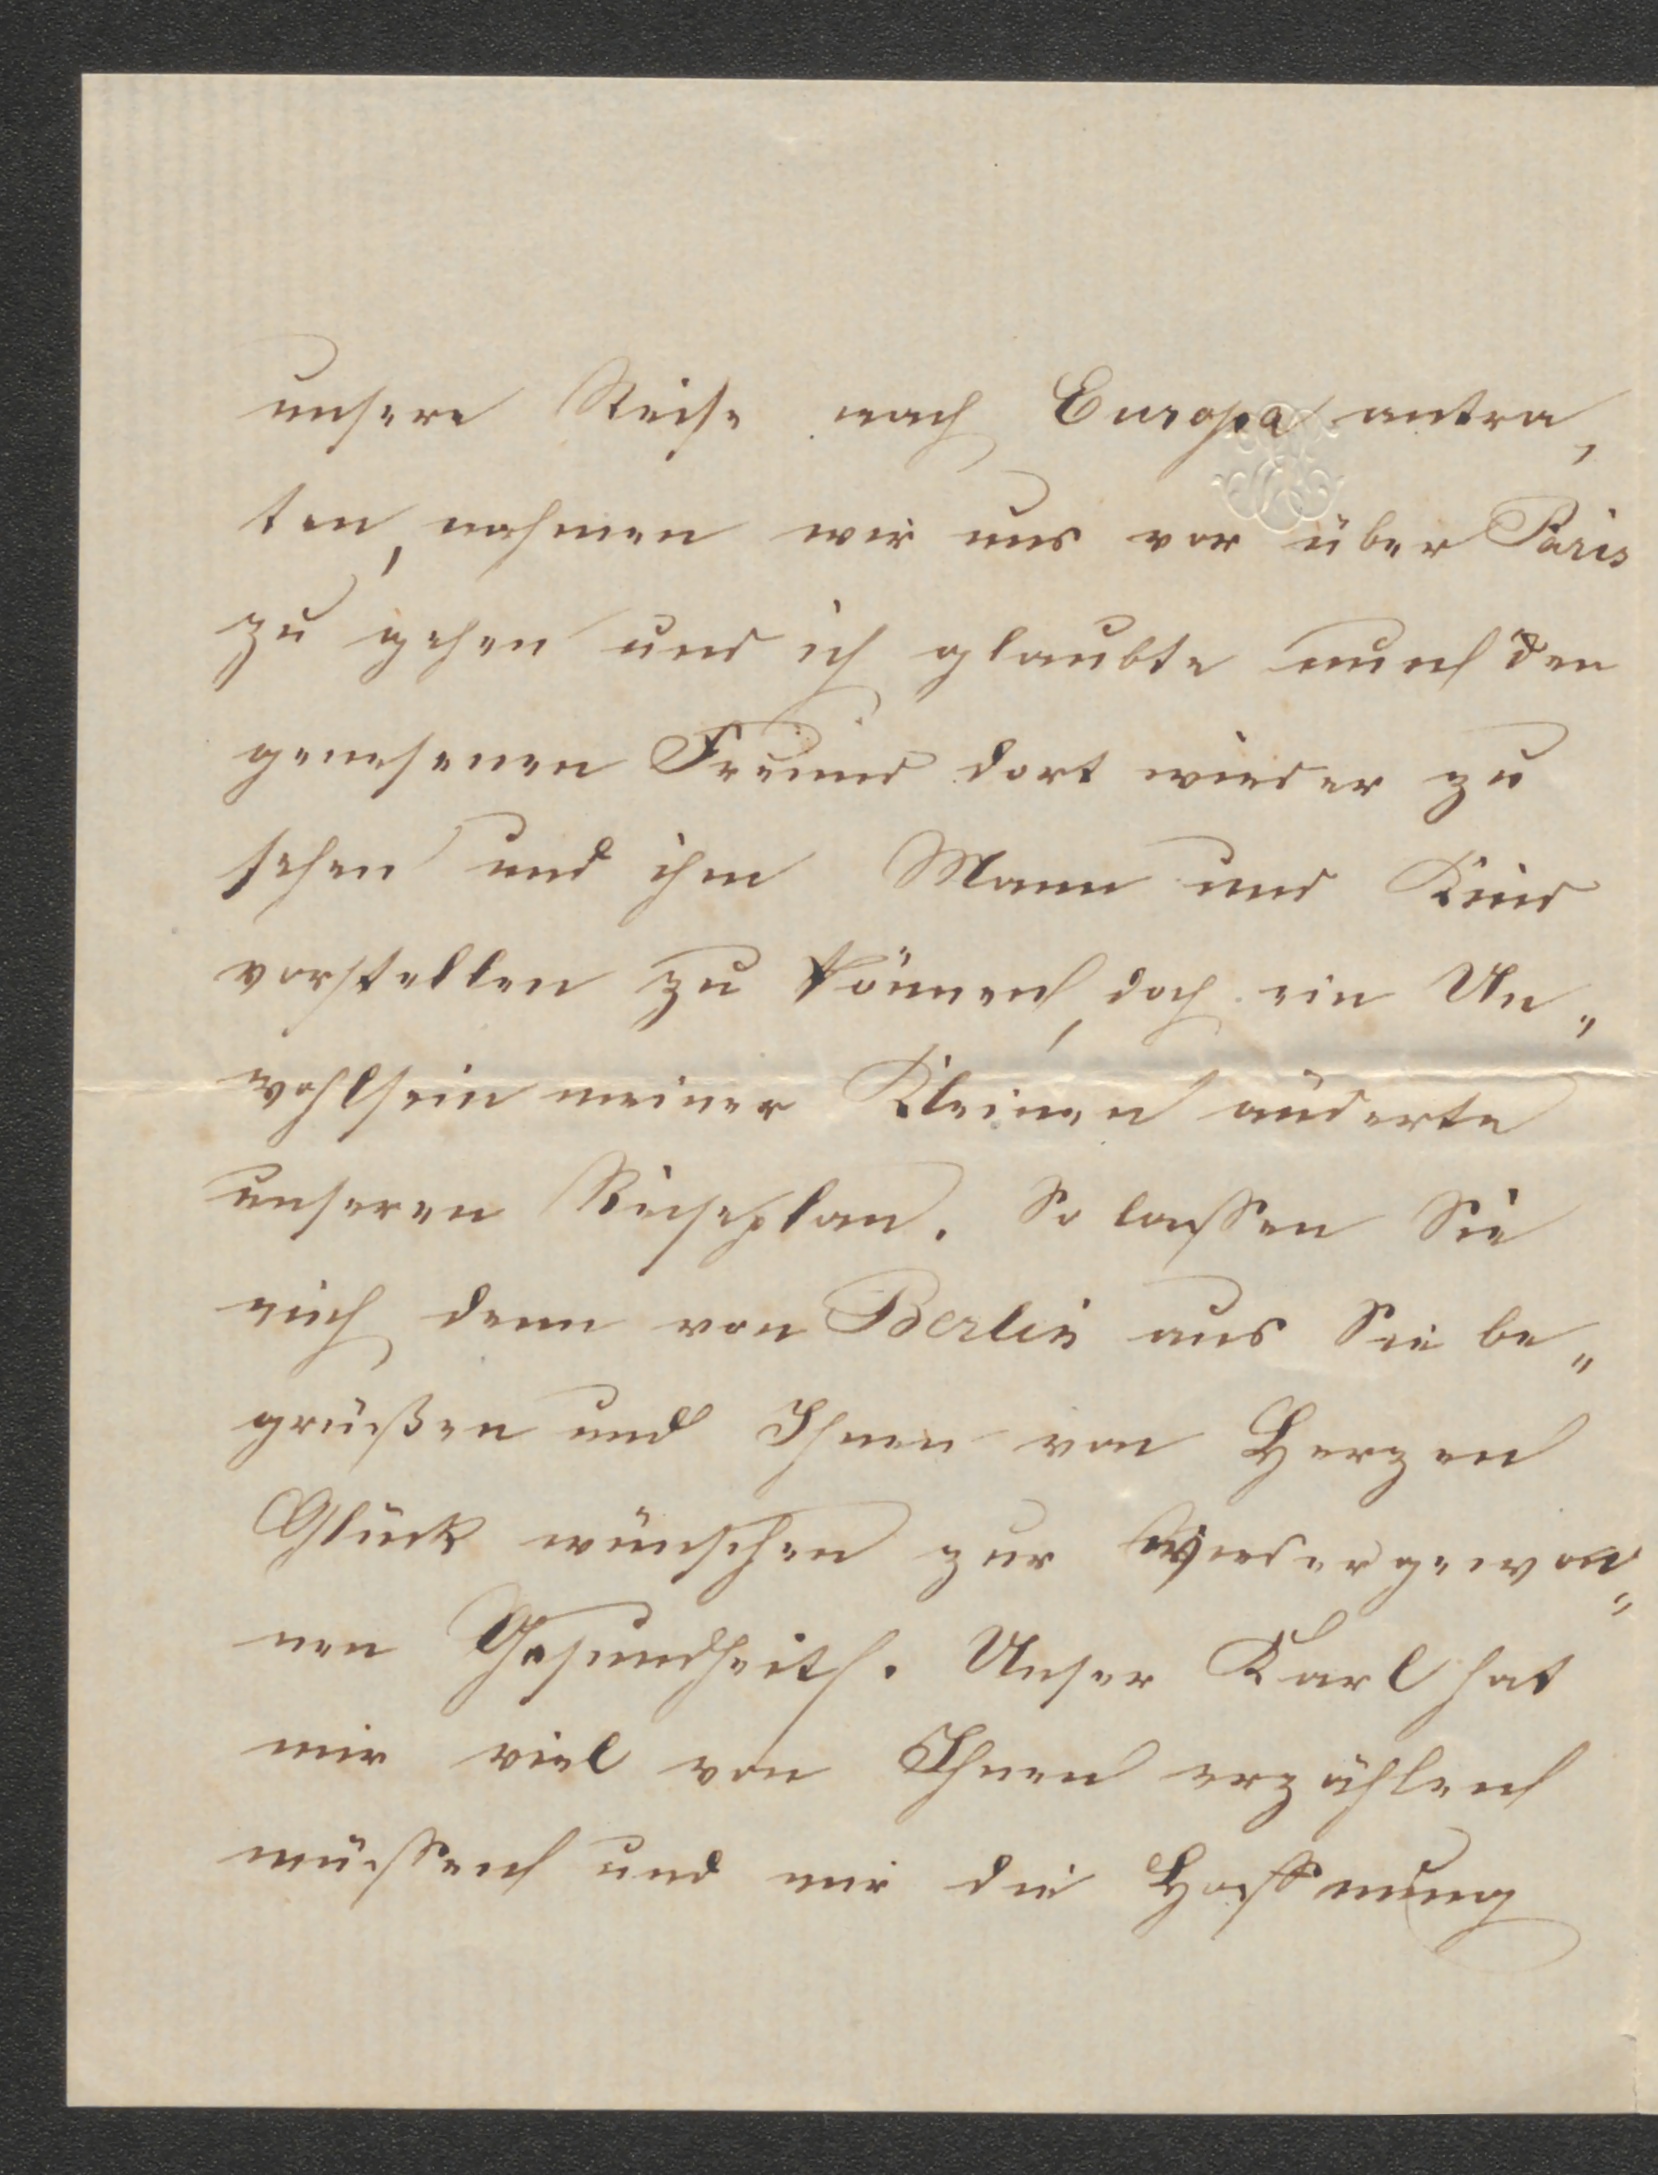 unsere Reise nach Europa antra,
ten, nahmen wir uns vor über Paris
zu gehen und ich glaubte nun den
genesenen Freund dort wieder zu
sehen und ihm Mann und Kind
vorstellen zu können, doch ein Un„
wohlsein meiner Kleinen änderte
unseren Reiseplan. So lassen Sie
mich denn von Berlin aus Sie be„
grüßen und Ihnen von Herzen
Glück wünschen zur wiedergewon„
nen Gesundheit. Unser Karl hat
mir viel von Ihnen erzählen
müssen und mir die Hoffnung